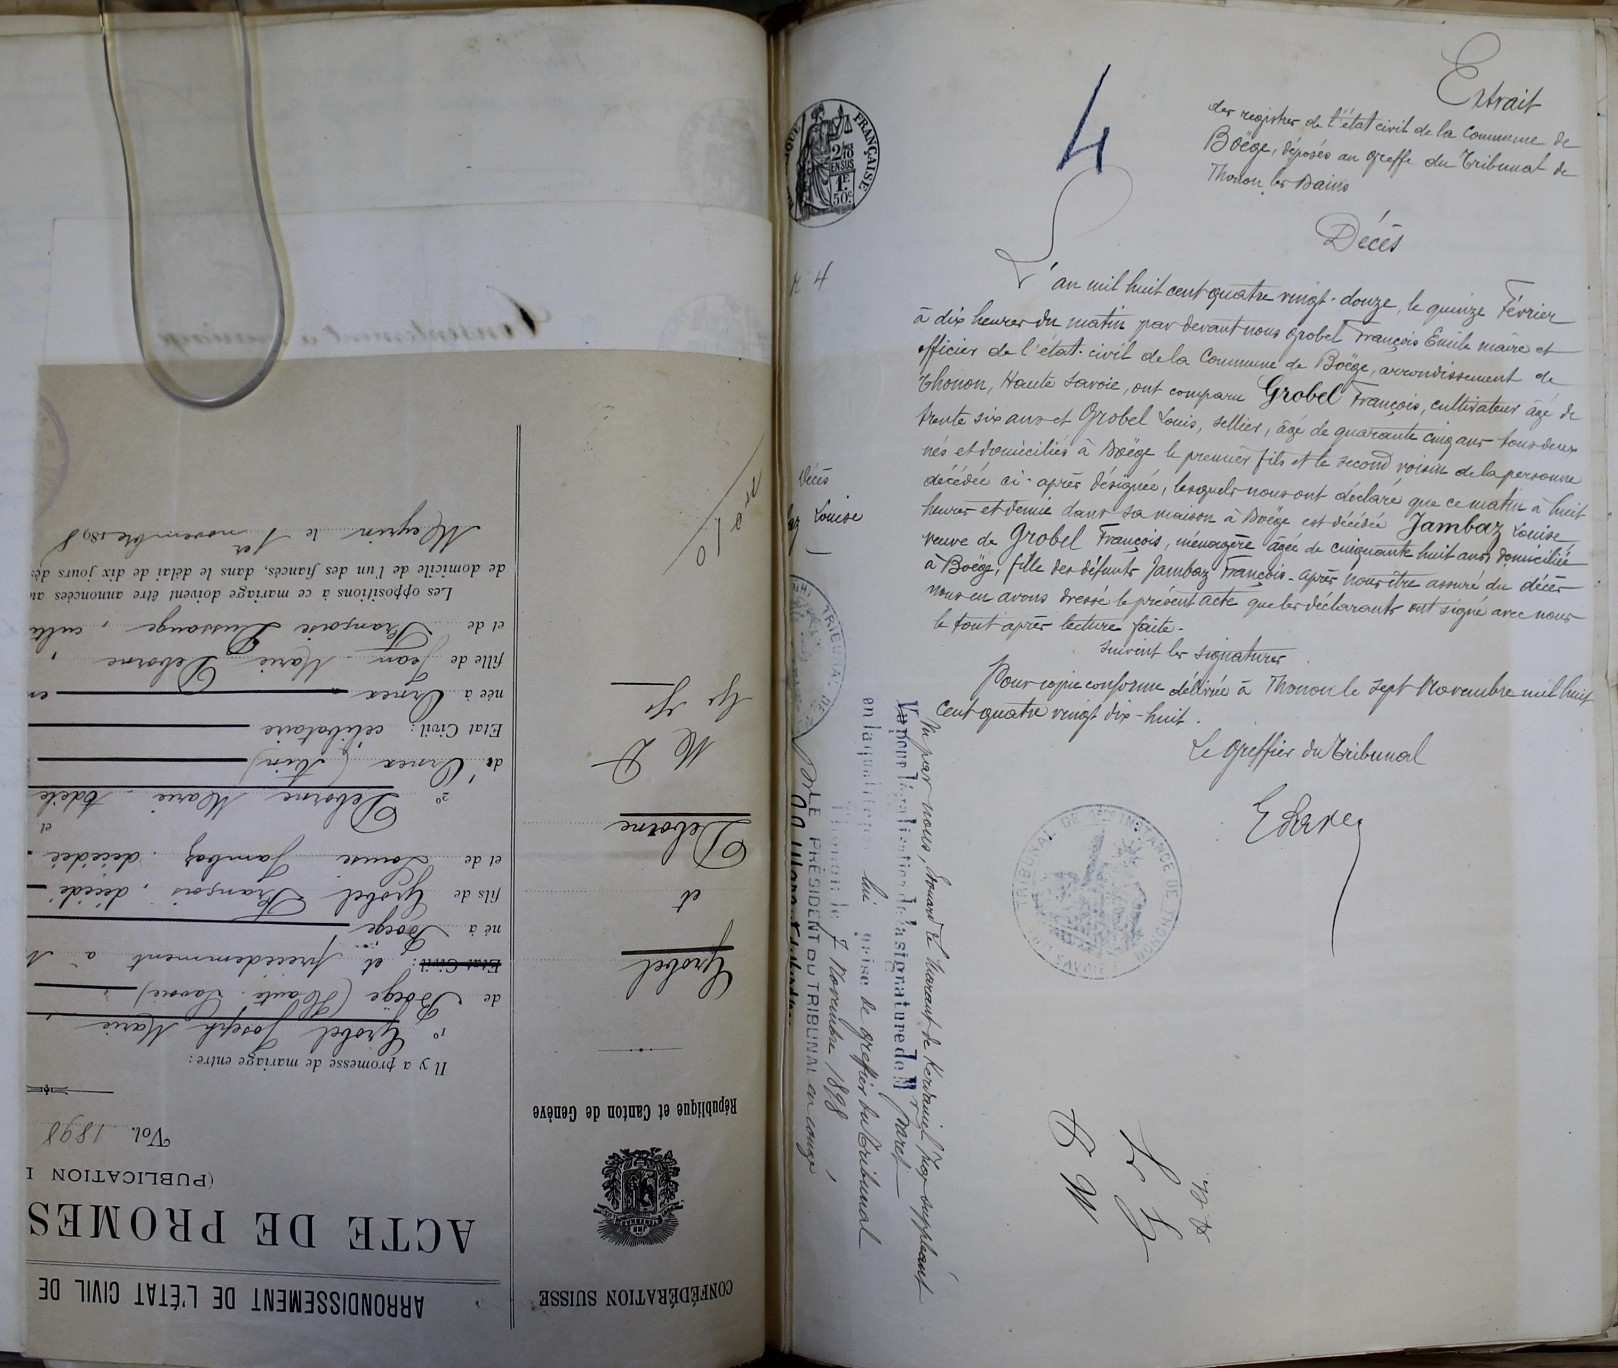 Extrait
des registres de l'état civil de la Commune de
Boëge, déposés au Greffe du Tribunal de
Thonon les Bains
4
RÉPUBLIQUE FRANÇAISE
2/10
EN SUS
1F
50c
N 4
Décès
L'an mil huit cent quatre vingt-douze, le quinze Février
à dix heures du matin par devant nous Grobel François Emile maire et
officier de l'état-civil de la Commune de Boëge, arrondissement de
Thonon, Haute Savoie, ont comparu Grobel François, cultivateur âgé de
trente six ans et Grobel Louis, sellier, âgé de quarante cinq ans tous deux
nés et domiciliés à Boëge le premier fils et le second voisin de la personne
décédée ci-après désignée, lesquels nous ont déclaré que ce matin à huit
heures et demie dans sa maison à Boëge est décédée Jambaz Louise
veuve de Grobel François, ménagère âgée de cinquante huit ans, domiciliée
à Boëge, fille des défunts Jambaz François - Après nous être assuré du décès
nous en avons dressé le présent acte que les déclarants ont signé avec nous
le tout après lecture faite.
Suivent les signatures
Pour copie conforme délivrée à Thonon le sept Novembre mil huit
cent quatre vingt dix-huit.
Le Greffier du Tribunal
Décès
Louise
TRIBUNAL DE 1ère INSTANCE DE THONON
Vu par nous,
Vu pour légalisation de la signature de Mr
en la qualité de greffier du Tribunal
Thonon le 7 Novembre 1898
LE PRÉSIDENT DU TRIBUNAL en congé
CONFÉDÉRATION SUISSE
République et Canton de Genève
Grobel
et
Deborne
ARRONDISSEMENT DE L'ÉTAT CIVIL DE
ACTE DE PROMES
(PUBLICATION
Vol. 1898
Il y a promesse de mariage entre:
1° Grobel Joseph Marie
de Boëge (Haute-Savoie)
Etat Civil: et précédemment à
né à Boëge
fils de Grobel François, décédé
et de Louise Jambaz, décédée
et
2° Deborne Marie Adèle
de Ornex (Ain)
Etat Civil: célibataire
née à Ornex
fille de Jean Marie Deborne
et de Françoise Dussauge, culti
Les oppositions à ce mariage doivent être annoncées au
de domicile de l'un des fiancés, dans le délai de dix jours dès
Meyrin le 1er novembre 1898